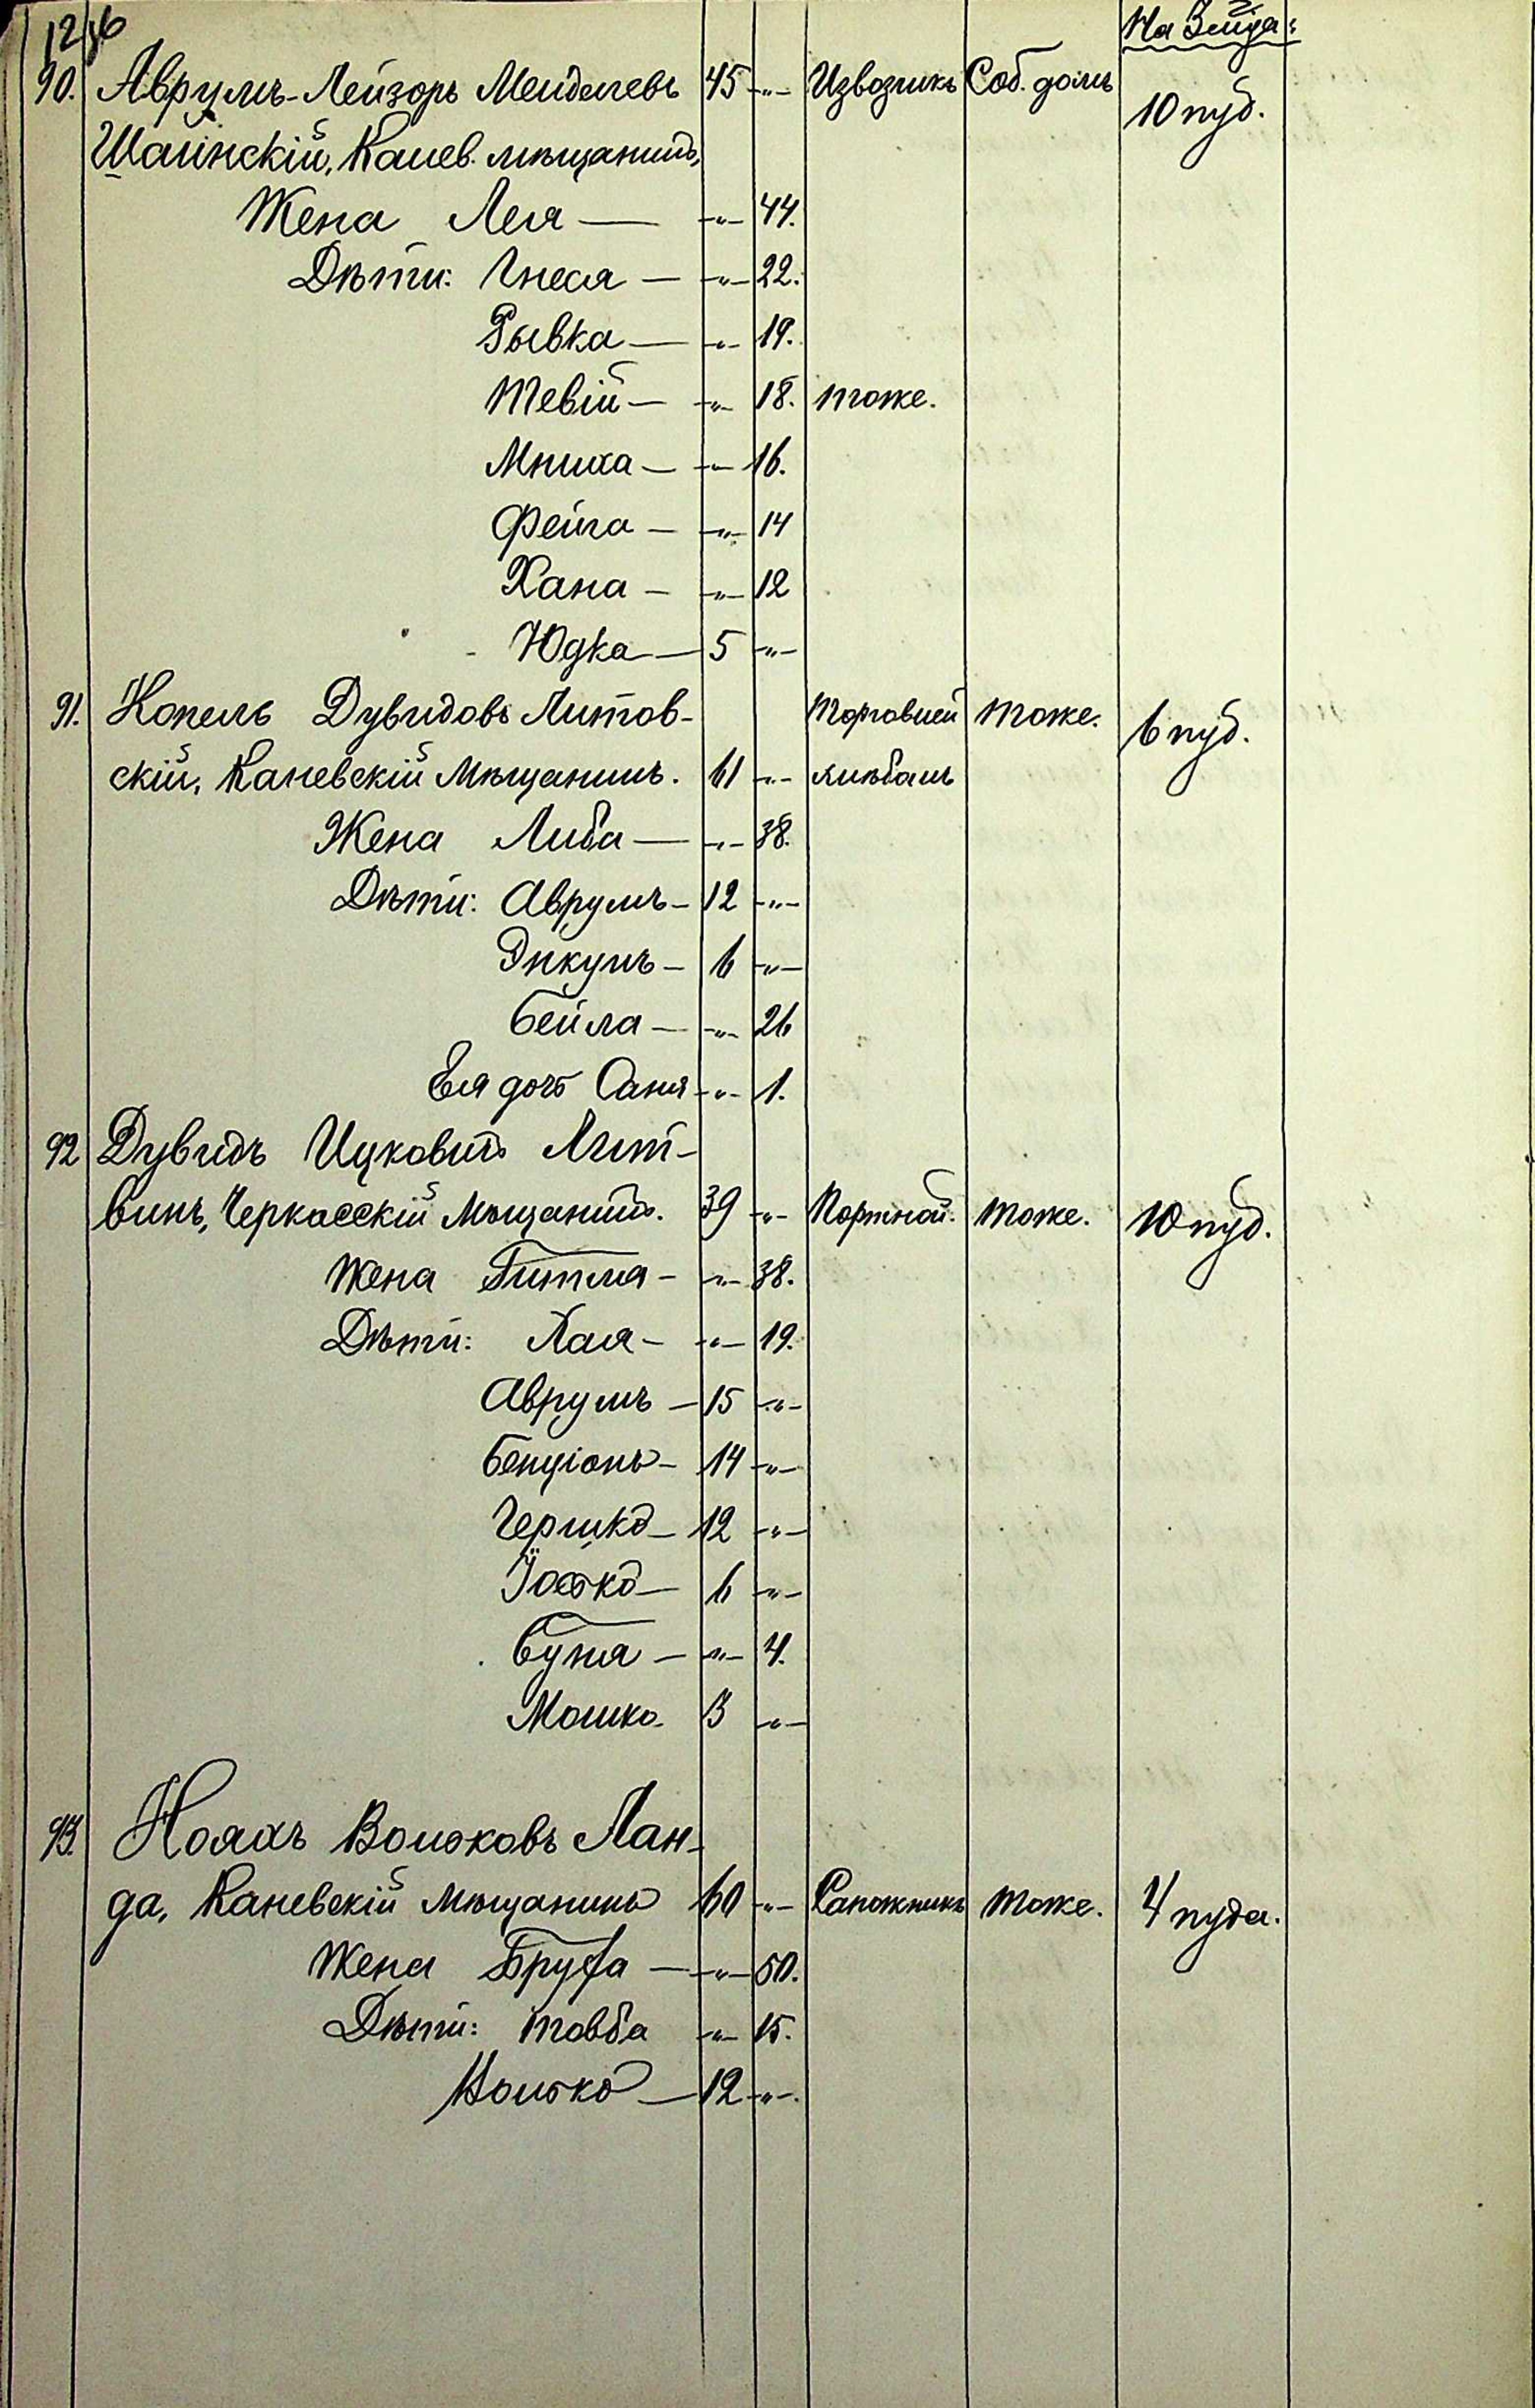 На
90. Аврумъ-Лейзоръ Менделевъ 45 -"- Извозчикъ Соб. домъ 10 пуд.
Шаинскій, Канев. мѣщанинъ,
Жена Лея — -"- 44.
Дѣти: Гнеся — -"- 22.
Рывка — -"- 19.
Тевій — -"- 18. тоже.
Мниха — -"- 16.
Фейга — -"- 14
Хана — -"- 12
Юдка — 5 -"-
91. Копель Дувидовъ Литов- Торговлей тоже. 6 пуд.
скій, Каневскій мѣщанинъ. 61 -"- хлѣбомъ
Жена Либа — -"- 38.
Дѣти: Аврумъ — 12 -"-
Янкумъ — 6 -"-
Бейла — -"- 26
Ея дочь Саня -"- 1.
92 Дувидъ Ицковичъ Лит-
винъ, Черкасскій мѣщанинъ. 39 -"- Портной. тоже. 10 пуд.
Жена Гитля — -"- 38.
Дѣти: Хая — -"- 19.
Аврумъ — 15 -"-
Бенціонъ — 14 -"-
Гершко — 12 -"-
Іосько — 6 -"-
Буня — -"- 4.
Мошко 3 -"-
93. Ноахъ Вольковъ Лан-
да, Каневскій мѣщанинъ 60 -"- Сапожникъ тоже. 4 пуда.
Жена Бруха — -"- 50.
Дѣти: Товба -"- 15.
Волько — 12 -"-